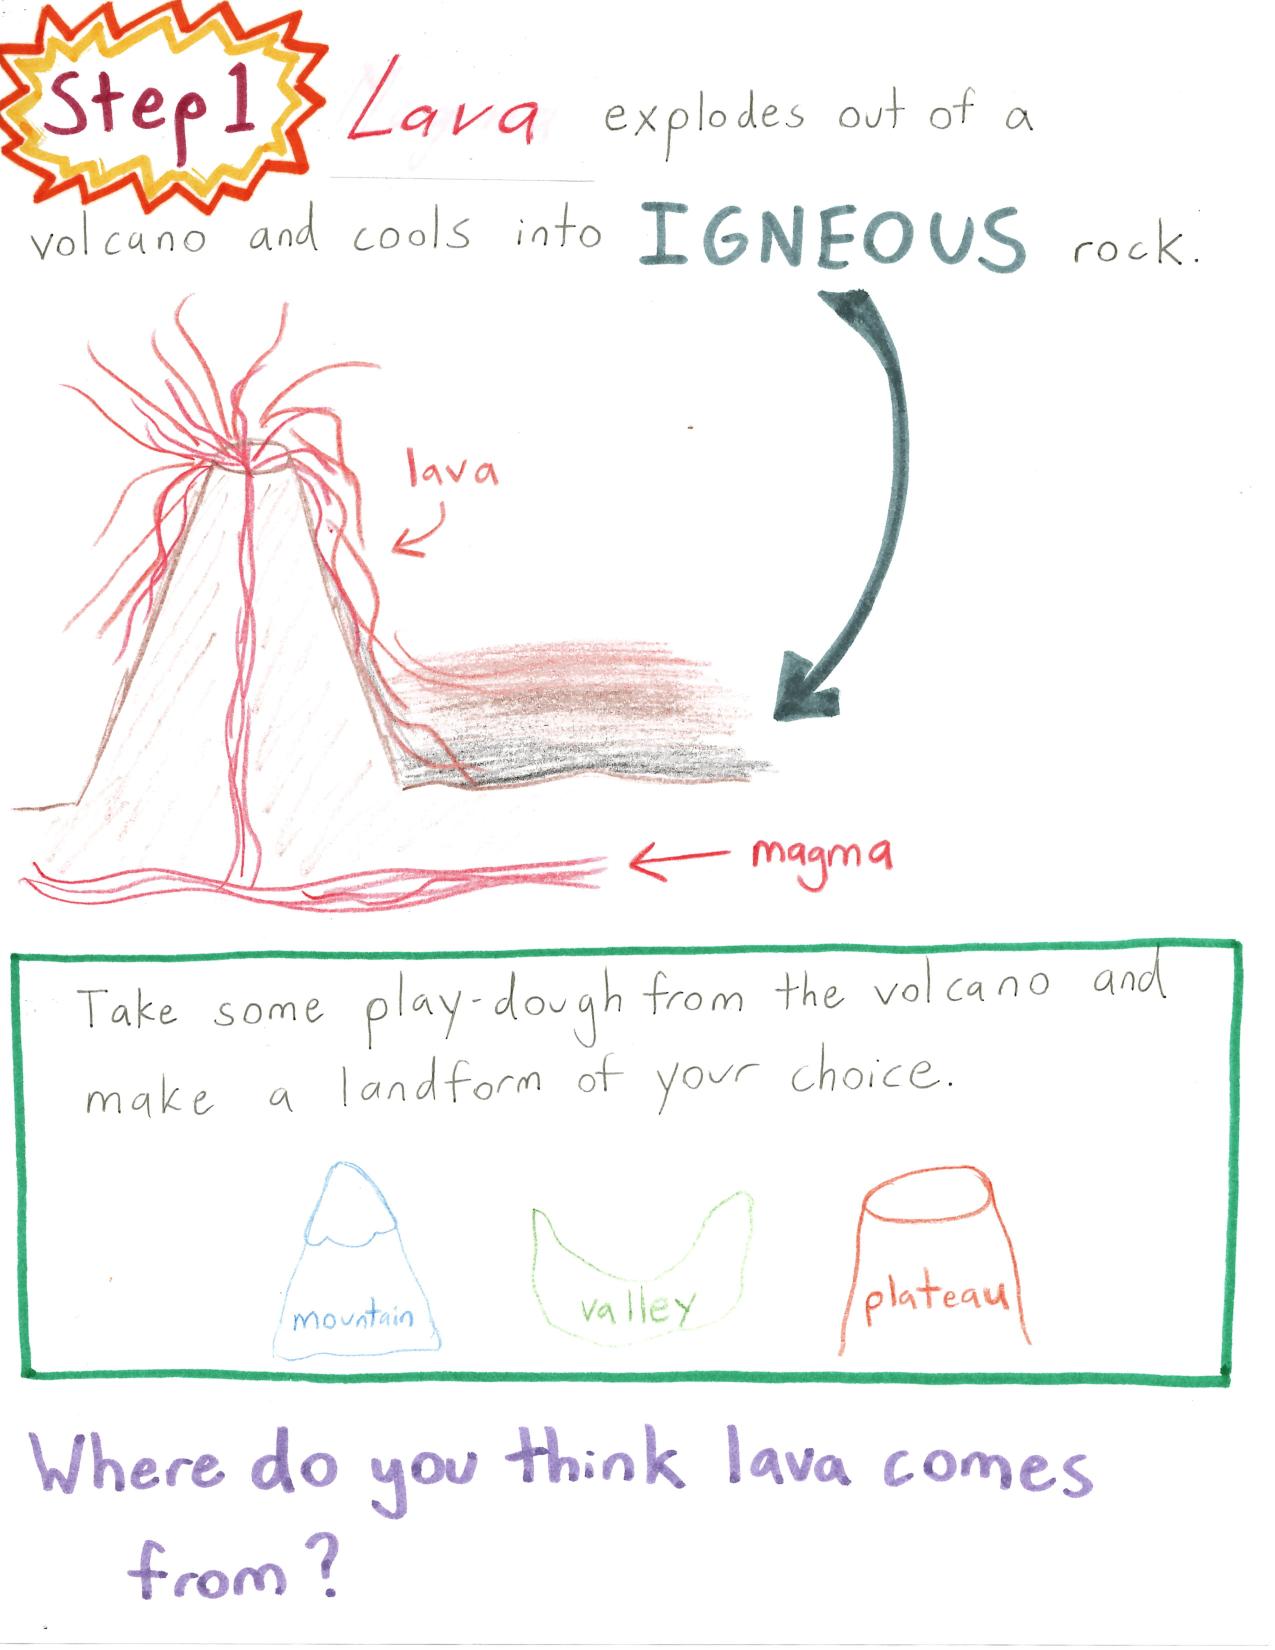 Step 1 Lava explodes out of a
volcano and cools into IGNEOUS rock.
lava
magma
Take some play-dough from the volcano and
make a landform of your choice.
mountain valley plateau
Where do you think lava comes
from?